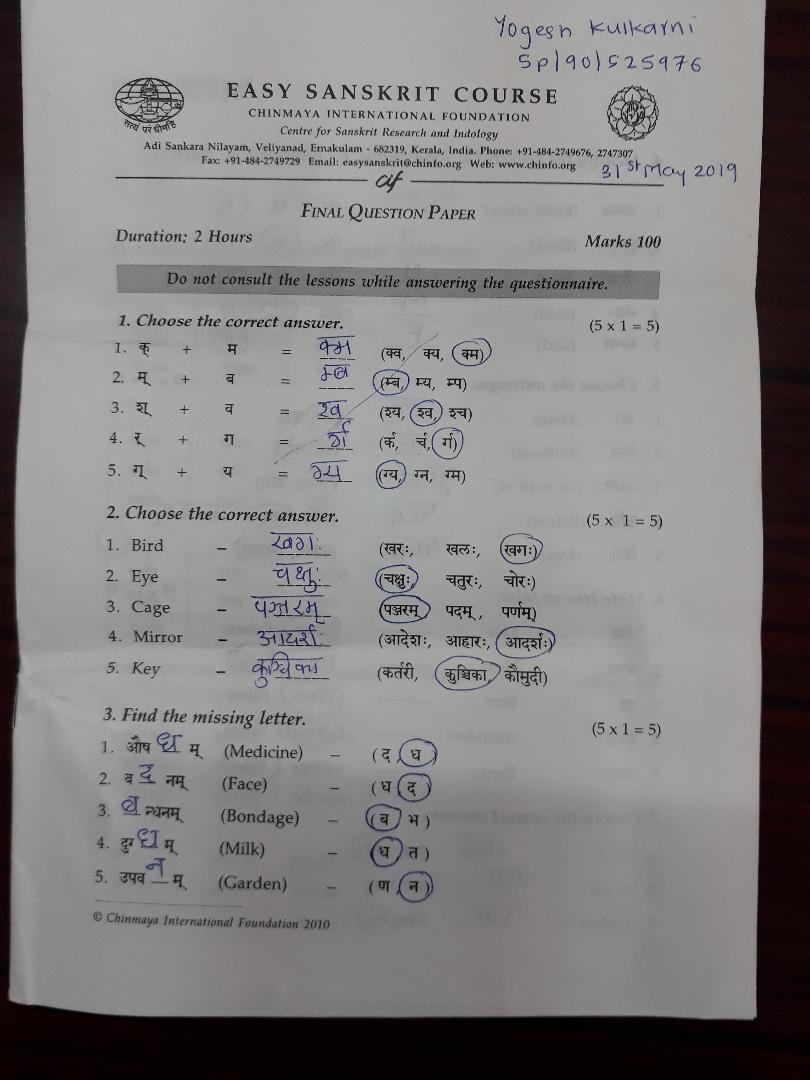 Yogesh Kulkarni
SP/90/525976
EASY SANSKRIT COURSE
CHINMAYA INTERNATIONAL FOUNDATION
Centre for Sanskrit Research and Indology
Adi Sankara Nilayam, Veliyanad, Ernakulam - 682319, Kerala, India. Phone: +91-484-2749676, 2747307
Fax: +91-484-2749729 Email: easysanskrit@chinfo.org Web: www.chinfo.org
सत्यं परं धीमहि
31st May 2019
FINAL QUESTION PAPER
Duration: 2 Hours Marks 100
Do not consult the lessons while answering the questionnaire.
1. Choose the correct answer. (5 x 1 = 5)
1. क् + म = क्म (क्व, क्य, क्म)
2. म् + ब = म्ब (म्ब, म्य, म्प)
3. श् + व = श्व (श्य, श्व, श्च)
4. र् + ग = र्ग (र्क, र्च, र्ग)
5. ग् + य = ग्य (ग्य, ग्न, ग्म)
2. Choose the correct answer. (5 x 1 = 5)
1. Bird – खगः (खरः, खलः, खगः)
2. Eye – चक्षुः (चक्षुः, चतुरः, चोरः)
3. Cage – पञ्जरम् (पञ्जरम्, पदम्, पर्णम्)
4. Mirror – आदर्शः (आदेशः, आहारः, आदर्शः)
5. Key – कुञ्चिका (कर्तरी, कुञ्चिका, कौमुदी)
3. Find the missing letter. (5 x 1 = 5)
1. औष ध म् (Medicine) – ( द , ध )
2. व द नम् (Face) – ( ध , द )
3. ब न्धनम् (Bondage) – ( ब , भ )
4. दुग् ध म् (Milk) – ( ध , त )
5. उपव न म् (Garden) – ( ण , न )
© Chinmaya International Foundation 2010